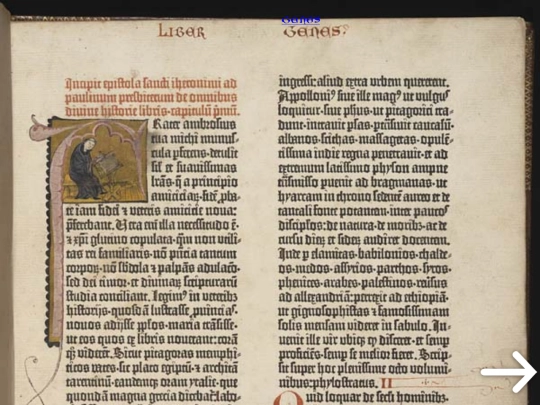 LIBER GENES
Incipit epistola sancti iheronimi ad
paulinum presbiterum de omnibus
divine historie libris capitulũ primũ.
Frater ambrosius
tua michi munus-
cula ꝑferens detulit
sił et suavissimas
lrãs q̃ a principio
amiciciaꝝ fidẽ ꝓba-
te iam fidei ⁊ veteris amicicie nova:
ꝓferebant. Vera eñ illa necessitudo ẽ
⁊ xp̃i glutino copulata: qm̃ non utili-
tas rei familiaris. nõ pñcia tantum
corpoꝝ. nõ subdola ⁊ palpãs adulacõ.
sed dei timor. et divinaꝝ scripturarũ
studia conciliant. Legimꝰ in veteribꝫ
historijs. quosdã lustrasse ꝓuincias
novos adijsse ꝓłos. maria trãsisse.
ut eos quos ex libris noverant: corã
qꝫ viderẽt. Sicut pitagoras memphi-
ticos vates. sic plato egiptũ ⁊ architã
tarentinũ. eandemqꝫ oram ytalie. que
quondã magna grecia dicebat̃: labo-
ingressi: aliud extra urbem quererent.
Appolloniꝰ sive ille magꝰ ut vulgꝰ
loquitur. sive phũs. ut pitagorici tra-
dunt. intravit psas. ptrãsivit caucasũ.
albanos. scithas. massagetas. opulẽ-
tissima indie regna penetravit: et ad
extremum latissimo physon ampne
trãsmisso puenit ad bragmanas: ut
hyarcam in throno sedentẽ aureo et de
tantali fonte potantem. inter paucos
discipulos. de natura. de moribꝫ. ac de
cursu dieꝝ et sideꝝ audiret docentem.
Inde ꝑ elamitas. babilonios. chalde-
os. medos. assyrios. parthos. syros.
phenices. arabes. palestinos. reversus
ad allexandriã: perrexit ad ethiopiã.
ut gignosophistas ⁊ famosissimam
solis mensam videret in sabulo. In-
venit ille vir ubiqꝫ qđ disceret: et semp
proficiẽs. semp se melior fieret. Scrip-
sit super hoc plenissime octo volumi-
nibus: phylostratus. II
Quid loquar de secli hominibꝫ.